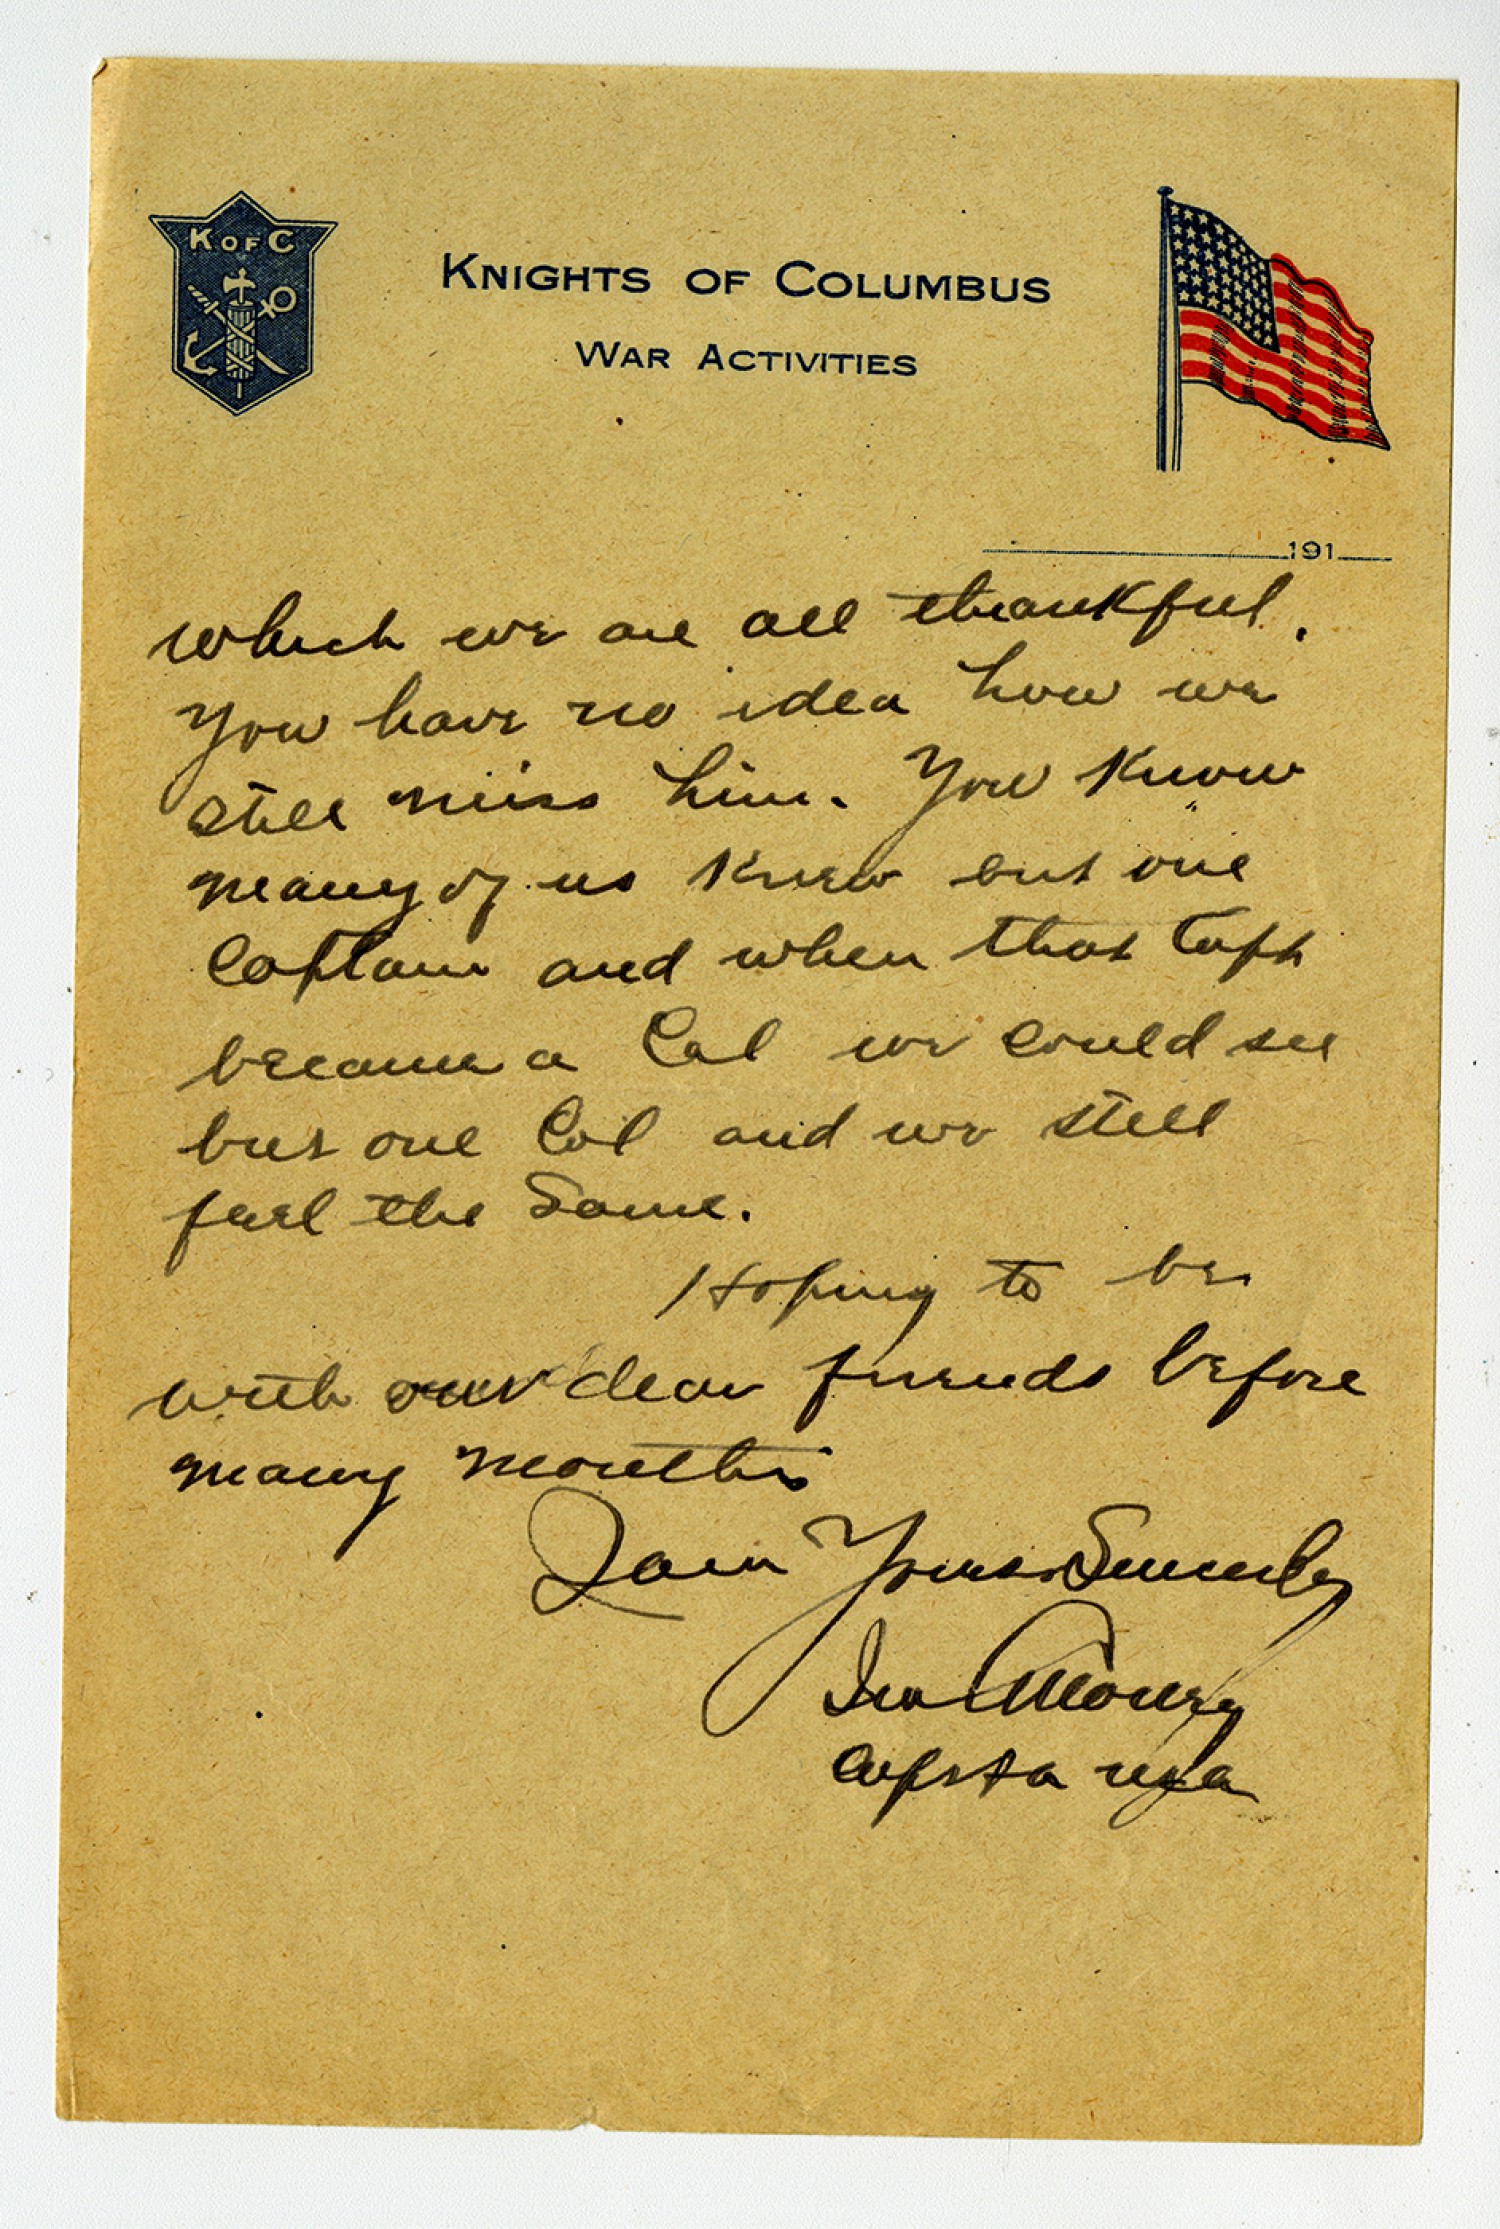 K OF C
KNIGHTS OF COLUMBUS
WAR ACTIVITIES
191
which we are all thankful.
You have no idea how we
still miss him. You know
many of us knew but one
Captain and when that Capt
became a Col we could see
but one Col and we still
feel the same.
Hoping to be
with our dear friends before
many months
I am Yours Sincerely
Capt